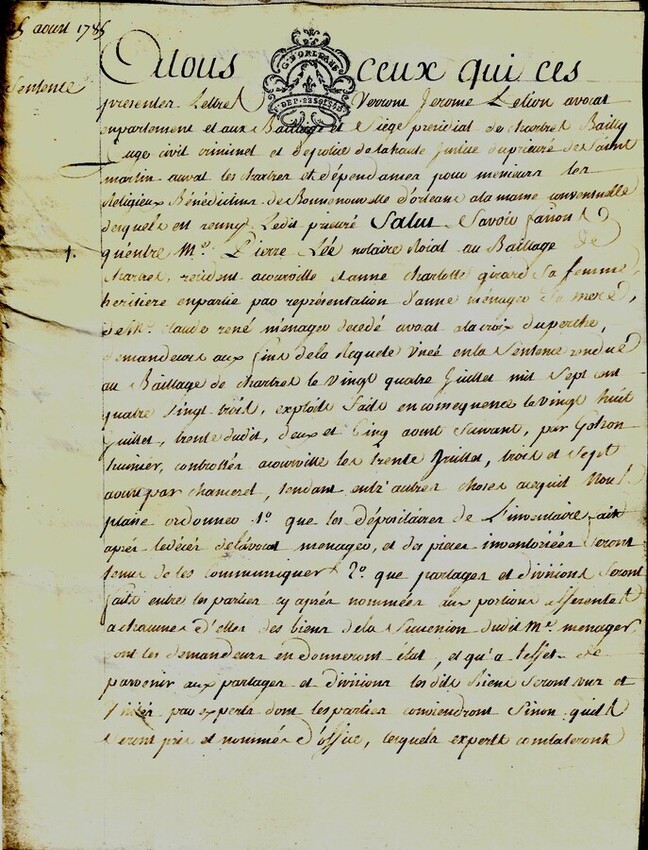 5 aoust 1785
Sentence
A tous ceux qui ces
G. D'ORLEANS
presentes Lettres Verrons Jerome Lelion avocat
en parlement et aux Bailliage et Siege presidial de chartres Bailly
Juge civil criminel et de police de la haute Justice du prieuré de Saint
martin au val les chartres et dependances pour messieurs les
Religieux Bénédictins de Bonnenouvelle d'orleans a la manse conventuelle
desquels est reuny Ledit prieuré Salut Savoir faisons
qu'entre Me. Pierre Lée notaire Roial au Baillage de
1.
chartres, resident a courville et anne charlotte girard Sa femme,
heritiere en partie par representation d'anne ménager Sa mere,
de Me. claude rené ménager decedé avocat a la croix du perche,
demandeurs aux fins de la Requete visée en la Sentence rendue
au Baillage de chartres le vingt quatre Juillet mil Sept cent
quatre vingt trois, exploits faits en consequence le vingt huit
Juillet, trente dudit, deux et Cinq aoust Suivant, par
huissier, controllés a courville les trente Juillet, trois et Sept
aoust par chameret, tendant entr'autres choses acequil Nous
plaise ordonner 1o. que les dépositaires de L'inventaire fait
aprés le décés de l'avocat menager, et des pieces inventoriées Seront
tenus de les Communiquer 2o. que partages et divisions Seront
faits entre les parties cy aprés nommées aux portions afferentes
a chacunes d'elles des biens de la Succession dudit Me. menager
dont les demandeurs en donneront état, et qu'a l'effet de
parvenir aux partages et divisions les dits Biens Seront vus et
Visités par experts dont les parties conviendront Sinon quils
Seront pris et nommés d'office, lesquels experts constateront